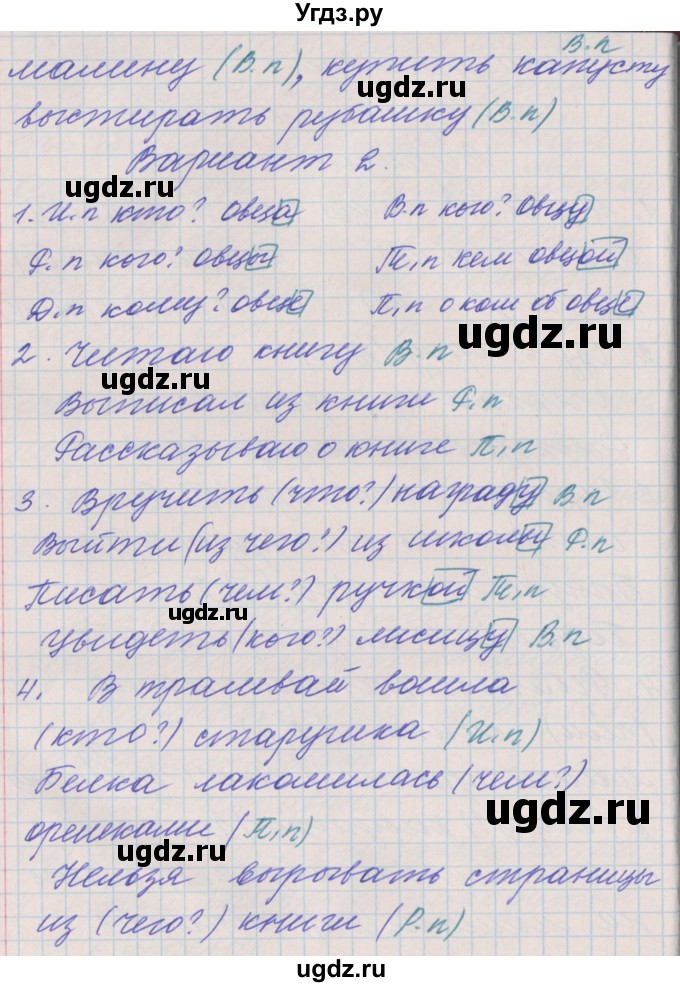 Угдз.ру
В.п
малину (В.п), купить капусту
выстирать рубашку (В.п)
Вариант 2.
1. И.п кто? овца В.п кого? овцу
Р.п кого? овцы Т.п кем овцой
Д.п кому? овце П.п о ком об овце
2. Читаю книгу В.п
Выписал из книги Р.п
Рассказываю о книге П.п
3. Вручить (что?) награду В.п
Выйти (из чего?) из школы Р.п
Писать (чем?) ручкой Т.п
Увидеть (кого?) лисицу В.п
4. В трамвай вошла
(кто?) старушка (И.п)
Белка лакомилась (чем?)
орешками (П.п)
Нельзя вырывать страницы
из (чего?) книги (Р.п)
ugdz.ru
ugdz.ru
ugdz.ru
ugdz.ru
ugdz.ru
ugdz.ru
ugdz.ru
ugdz.ru
ugdz.ru
ugdz.ru
ugdz.ru
ugdz.ru